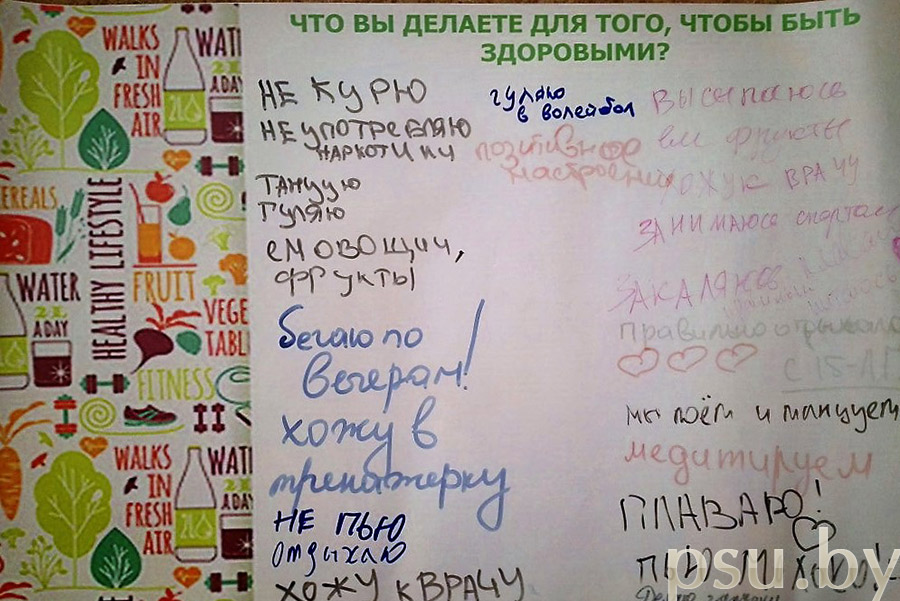 ЧТО ВЫ ДЕЛАЕТЕ ДЛЯ ТОГО, ЧТОБЫ БЫТЬ
ЗДОРОВЫМИ?
НЕ КУРЮ
НЕ УПОТРЕБЛЯЮ
НАРКОТИКИ
ТАНЦУЮ
ГУЛЯЮ
ЕМ ОВОЩИ,
ФРУКТЫ
бегаю по
вечерам!
хожу в
тренажерку
НЕ ПЬЮ
отдыхаю
ХОЖУ К ВРАЧУ
гуляю
в волейбол
ПОЗИТИВНОЕ
настроение
ВЫСЫПАЮСЬ
ем фрукты
ХОЖУ К ВРАЧУ
ЗАНИМАЮСЬ спортом
ЗАКАЛЯЮСЬ
правильно
С 15-ЛП
мы поём и танцуем
медитируем
ПЛАВАЮ!
ПЬЮ
WALKS
IN
FRESH
AIR
WATE
2L
A DAY
CEREALS
HEALTHY LIFESTYLE
WATER
A DAY
FRUIT
VEGE
TABL
FITNESS
WALKS
IN
FRESH
AIR
WATE
2L
A DAY
psu.by